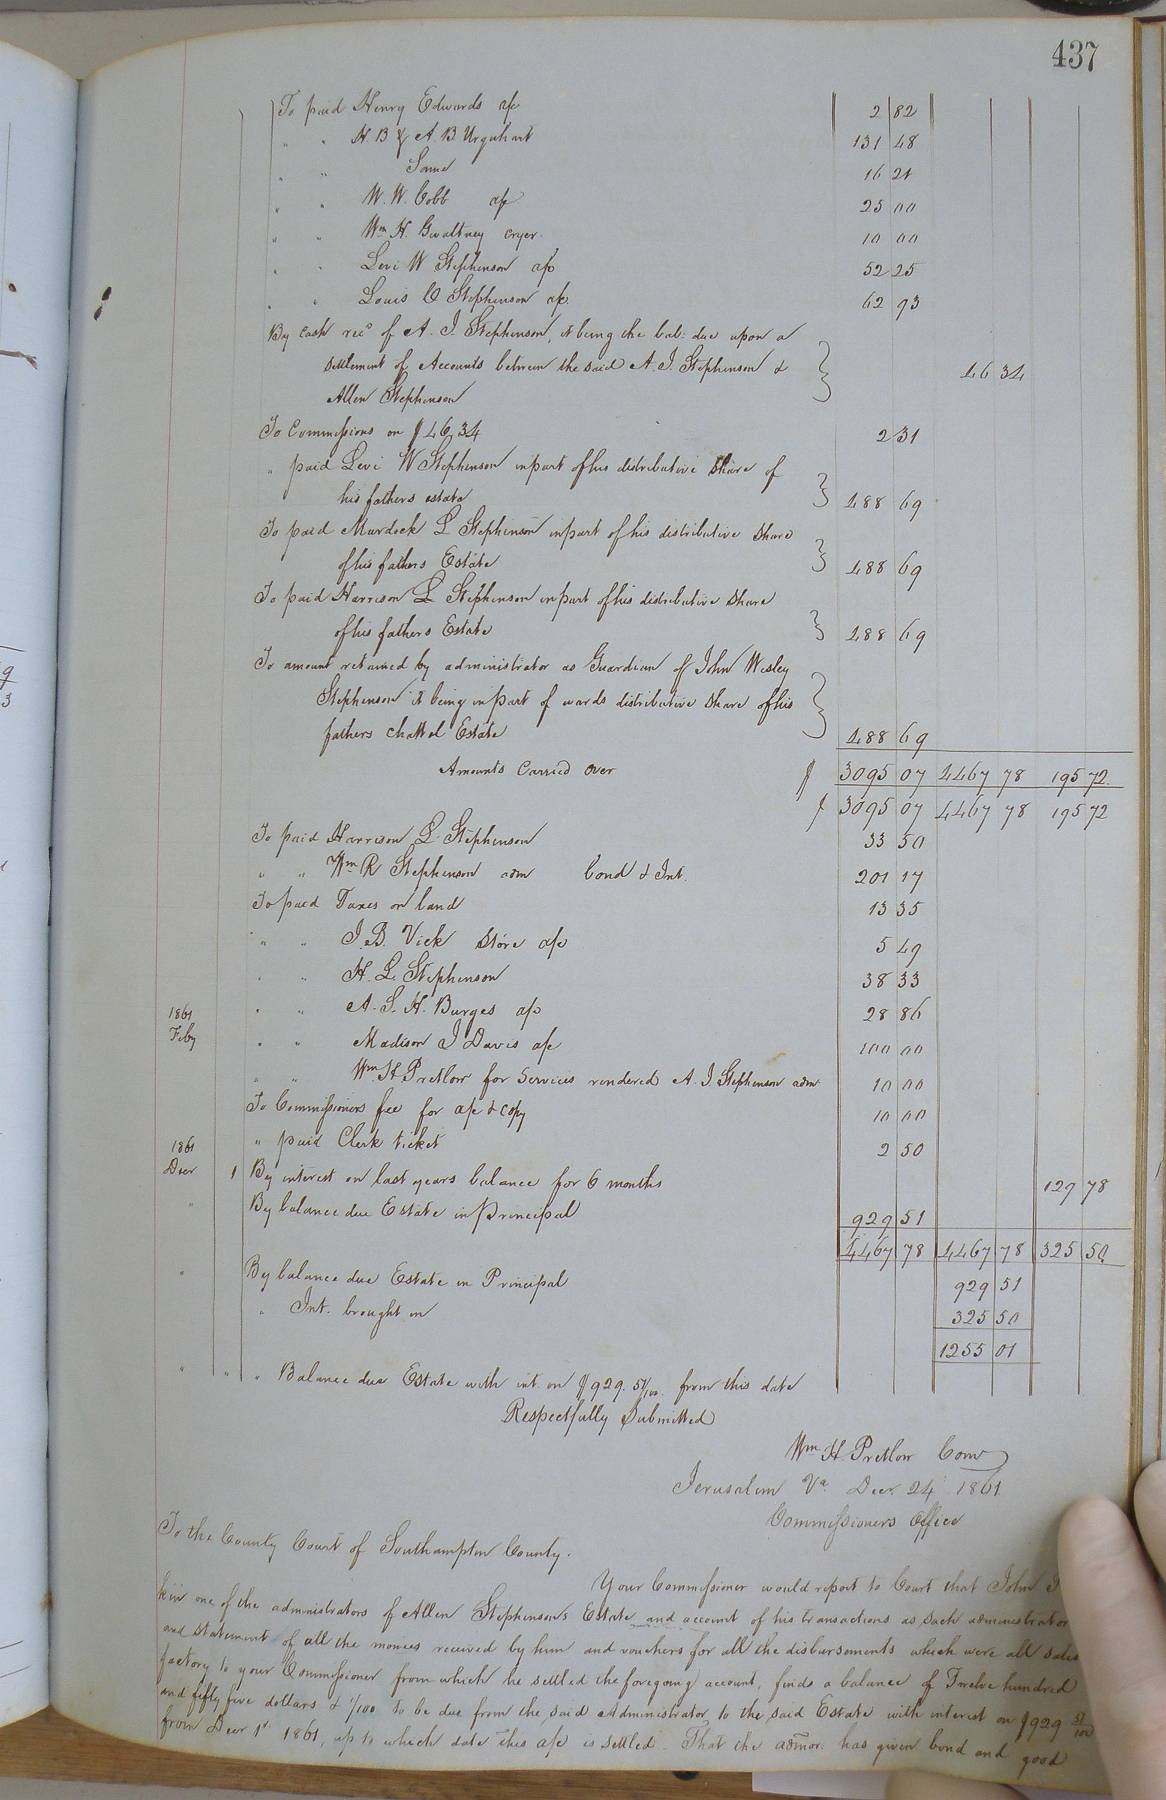 437
To paid Henry Edwards a/c 2 82
" " H. B & A. B. Urquhart 131 48
" " Same 16 21
" " W. W. Cobb a/c 25 00
" " Wm H. Gwaltney cryer. 10 00
" " Levi W Stephenson a/c 52 25
" " Louis C Stephenson a/c 62 93
By cash recd of A. J. Stephenson, it being the bal: due upon a
settlement of Accounts between the said A. J. Stephenson & 46 34
Allen Stephenson
To Commissions on $46,34 2 31
" paid Levi W Stephenson in part of his distributive share of
his fathers estate 488 69
To paid Murdock L Stephenson in part of his distributive share
of his fathers Estate 488 69
To paid Harrison L Stephenson in part of his distributive share
of his fathers Estate 488 69
To amount retained by administrator as Guardian of John Wesley
Stephenson it being in part of wards distributive share of his
fathers chattel Estate 488 69
Amounts Carried over $ 3095 07 4467 78 195 72
$ 3095 07 4467 78 195 72
To paid Harrison L. Stephenson 33 50
" " Wm R Stephenson adm bond & Int. 201 17
To paid Taxes on land 13 35
" " J. B. Vick store a/c 5 49
" " H. L. Stephenson 38 33
1861 " " A. S. H. Burges a/c 28 86
Feby " " Madison J Davis a/c 100 00
" " Wm H. Pretlow for services rendered A. J. Stephenson adm 10 00
To Commissioners fee for a/c & copy 10 00
1861 " paid Clerk ticket 2 50
Decr 1 By interest on last years balance for 6 months 129 78
" By balance due Estate in Principal 929 51
4467 78 4467 78 325 50
" By balance due Estate in Principal 929 51
" Int. brought on 325 50
1255 01
" " " Balance due Estate with int. on $929. 51/100 from this date
Respectfully Submitted
Wm H. Pretlow Com
Jerusalem Va Decr 24 1861
Commissioners Office
To the County Court of Southampton County.
Your Commissioner would report to Court that John
kin one of the administrators of Allen Stephenson's Estate and account of his transactions as such administrator
and statement of all the monies received by him and vouchers for all the disbursements which were all satis
factory to your Commissioner from which he settled the foregoing account, finds a balance of Twelve hundred
and fifty five dollars & 1/100 to be due from the said Administrator to the said Estate with interest on $929 51/100
from Decr 1st 1861, up to which date this a/c is settled. That the admor. has given bond and good